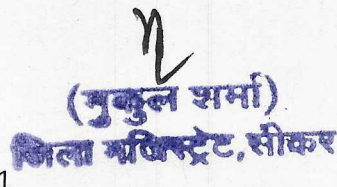 (मुकुल शर्मा)
जिला मजिस्ट्रेट, सीकर
1